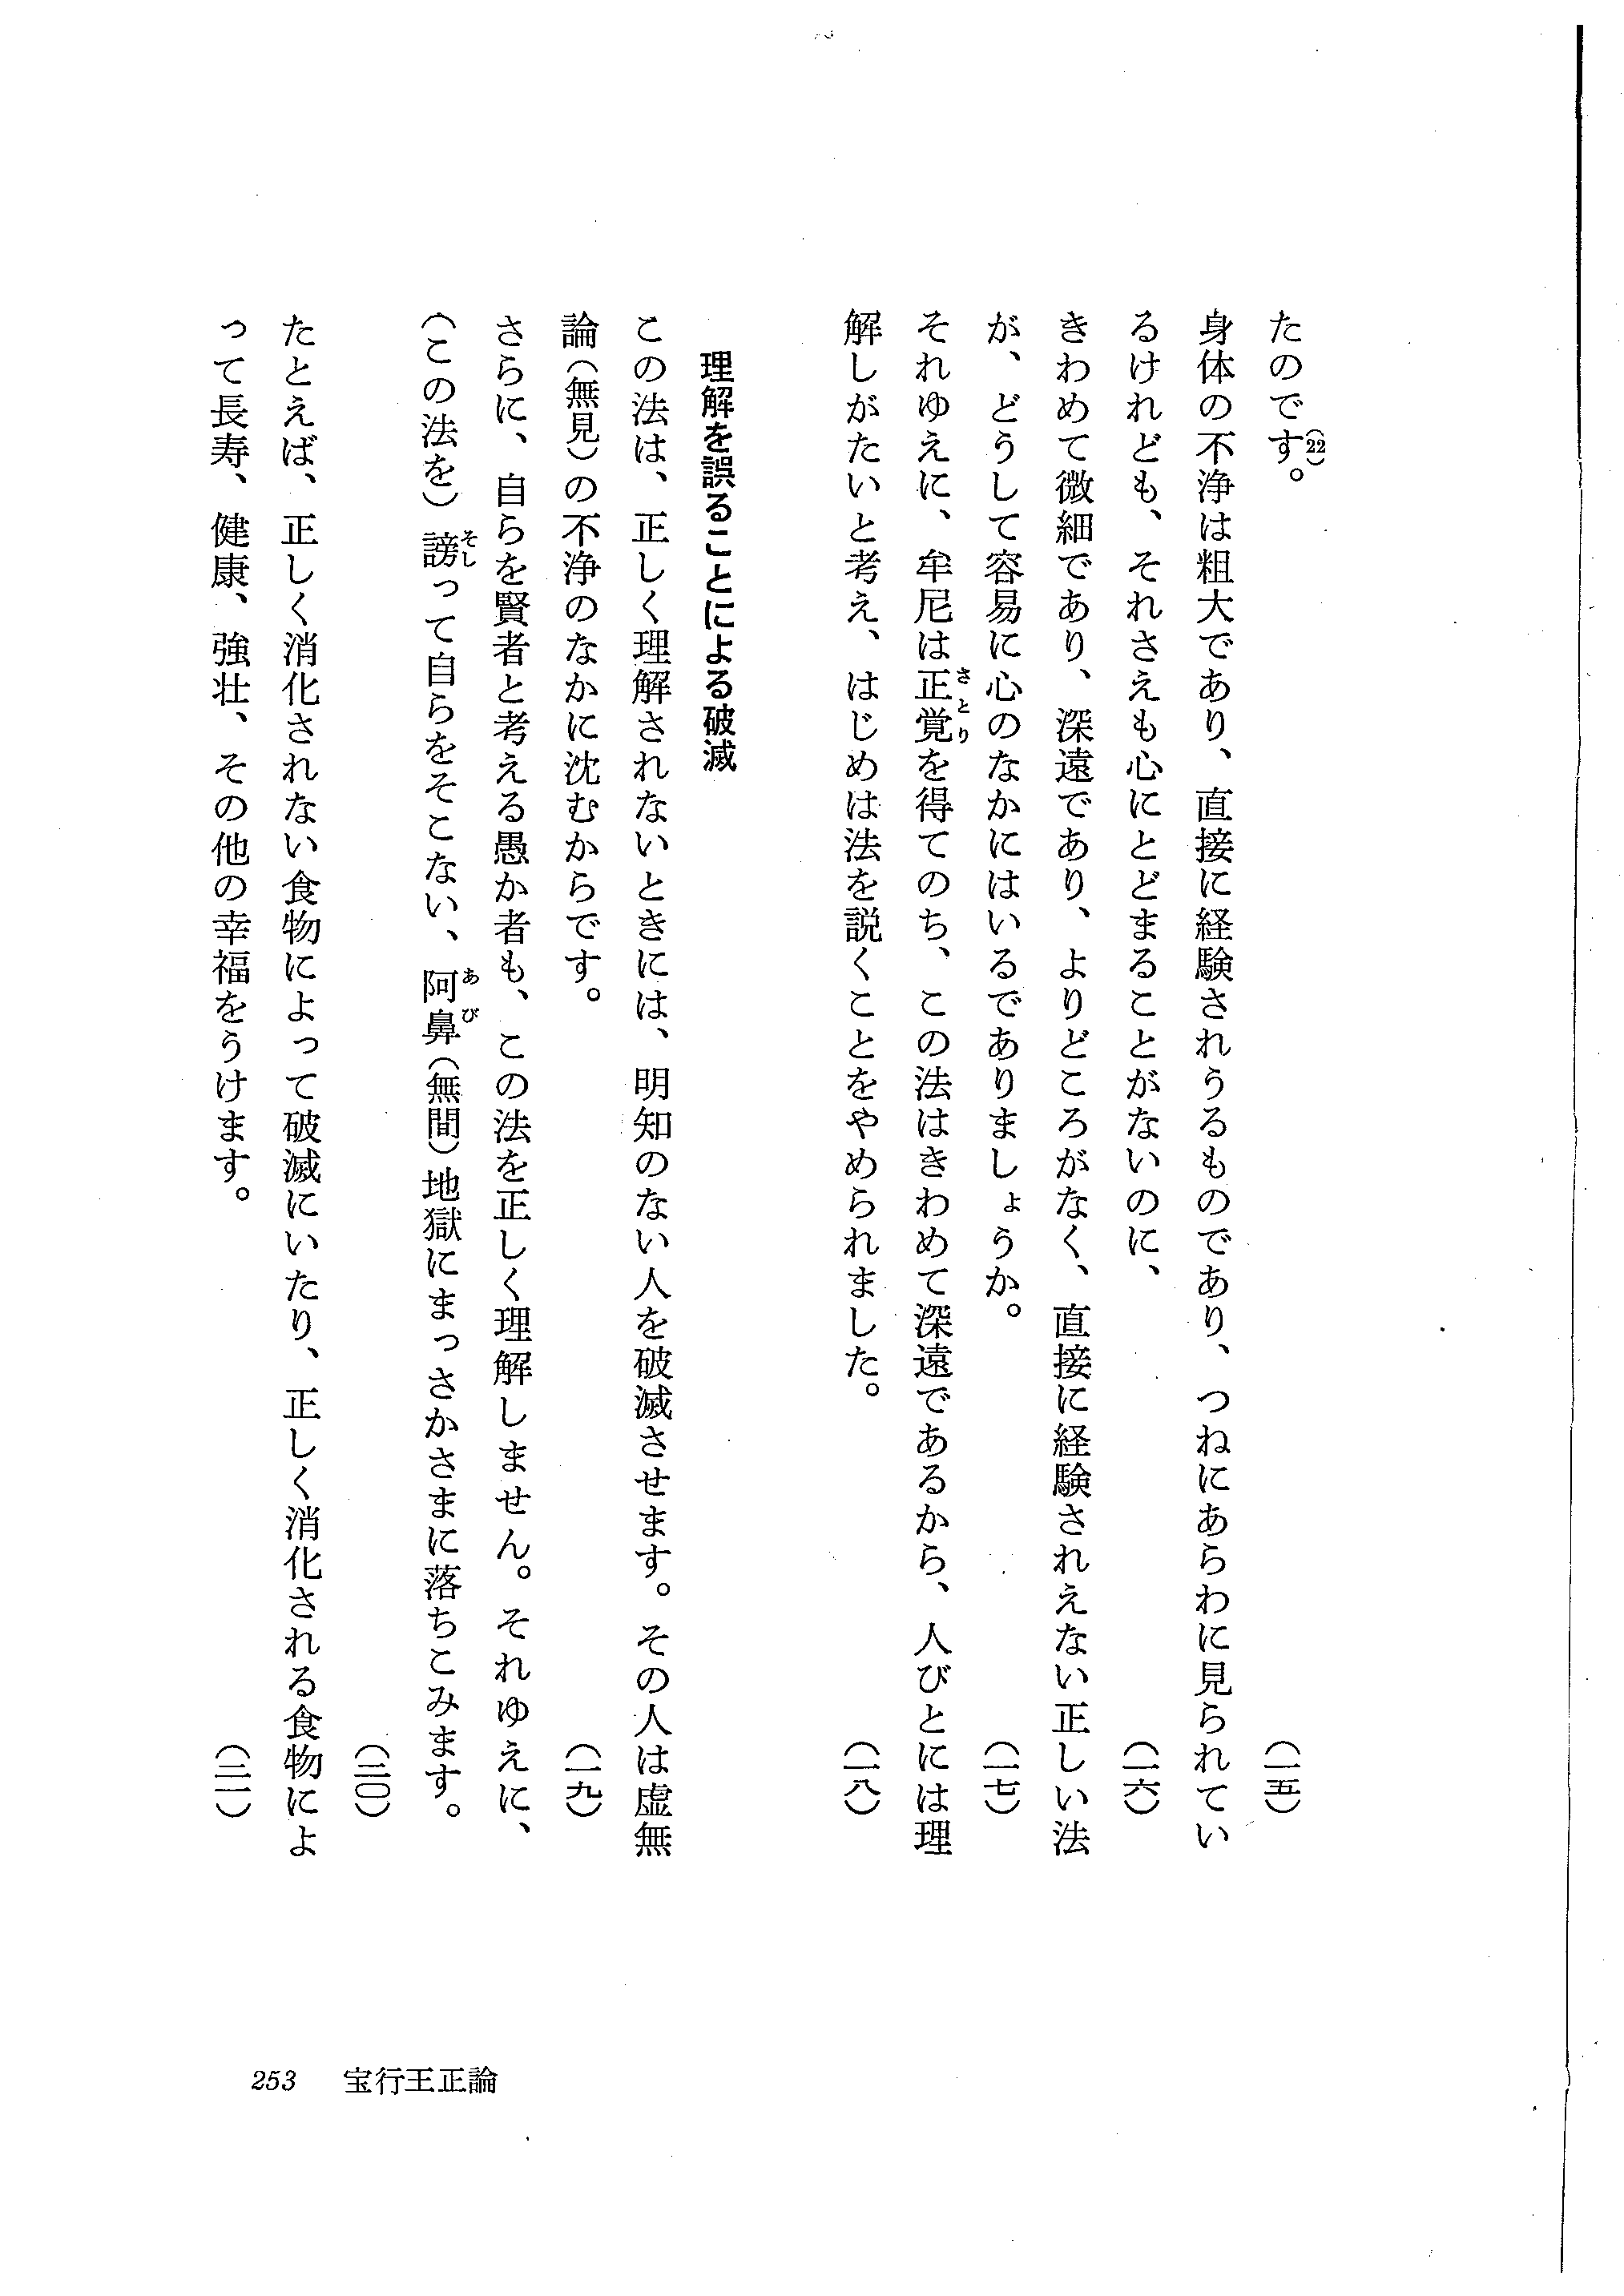 たのです。(22)
(一五)
身体の不浄は粗大であり、直接に経験されうるものであり、つねにあらわに見られてい
るけれども、それさえも心にとどまることがないのに、
(一六)
きわめて微細であり、深遠であり、よりどころがなく、直接に経験されえない正しい法
が、どうして容易に心のなかにはいるでありましょうか。
(一七)
それゆえに、牟尼は正覚さとりを得てのち、この法はきわめて深遠であるから、人びとには理
解しがたいと考え、はじめは法を説くことをやめられました。
(一八)
理解を誤ることによる破滅
この法は、正しく理解されないときには、明知のない人を破滅させます。その人は虚無
論(無見)の不浄のなかに沈むからです。
(一九)
さらに、自らを賢者と考える愚か者も、この法を正しく理解しません。それゆえに、
(この法を)謗そしって自らをそこない、阿鼻あび(無間)地獄にまっさかさまに落ちこみます。
(二〇)
たとえば、正しく消化されない食物によって破滅にいたり、正しく消化される食物によ
って長寿、健康、強壮、その他の幸福をうけます。
(二一)
253 宝行王正論